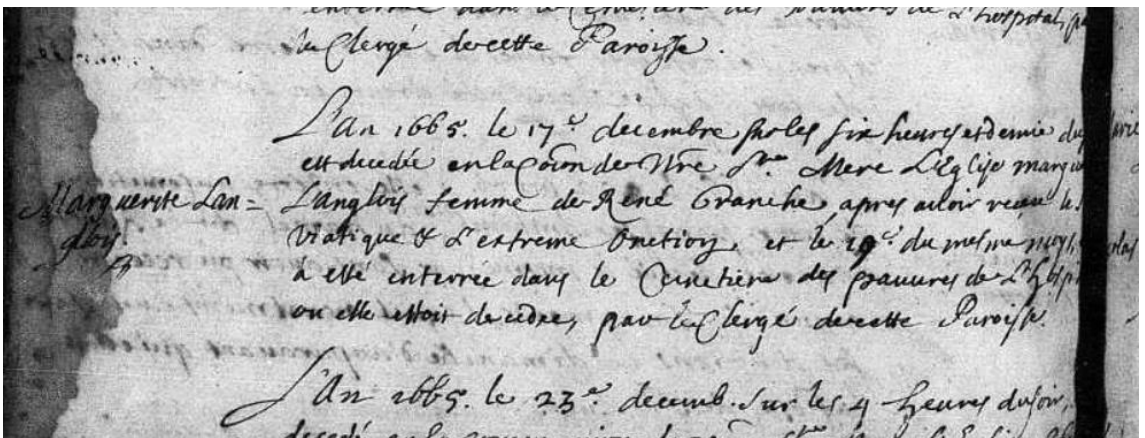 enterrée dans le Cemetiere des pauvres de L'hospital, pa
le Clergé de cette Paroisse.
L'an 1665. le 17e decembre sur les six heures et demie du
est decedée en la Coõn de Nre Ste Mere L'Eglise margu
Marguerite Lan= Langlois femme de René Branche, apres avoir receu le
glois. Viatique & L'extreme Onction, et le 19e du mesme moys
à esté enterrée dans le Cemetiere des pauures de L'hospi
ou elle estoit decedée, par le Clergé de cette Paroisse.
L'An 1665. le 23e decemb. sur les 4 heures du soir,
decedé